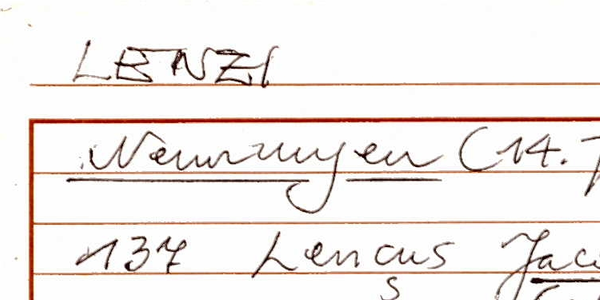 LENZI
Nennungen (14. J
137 Lencus Jaco
s